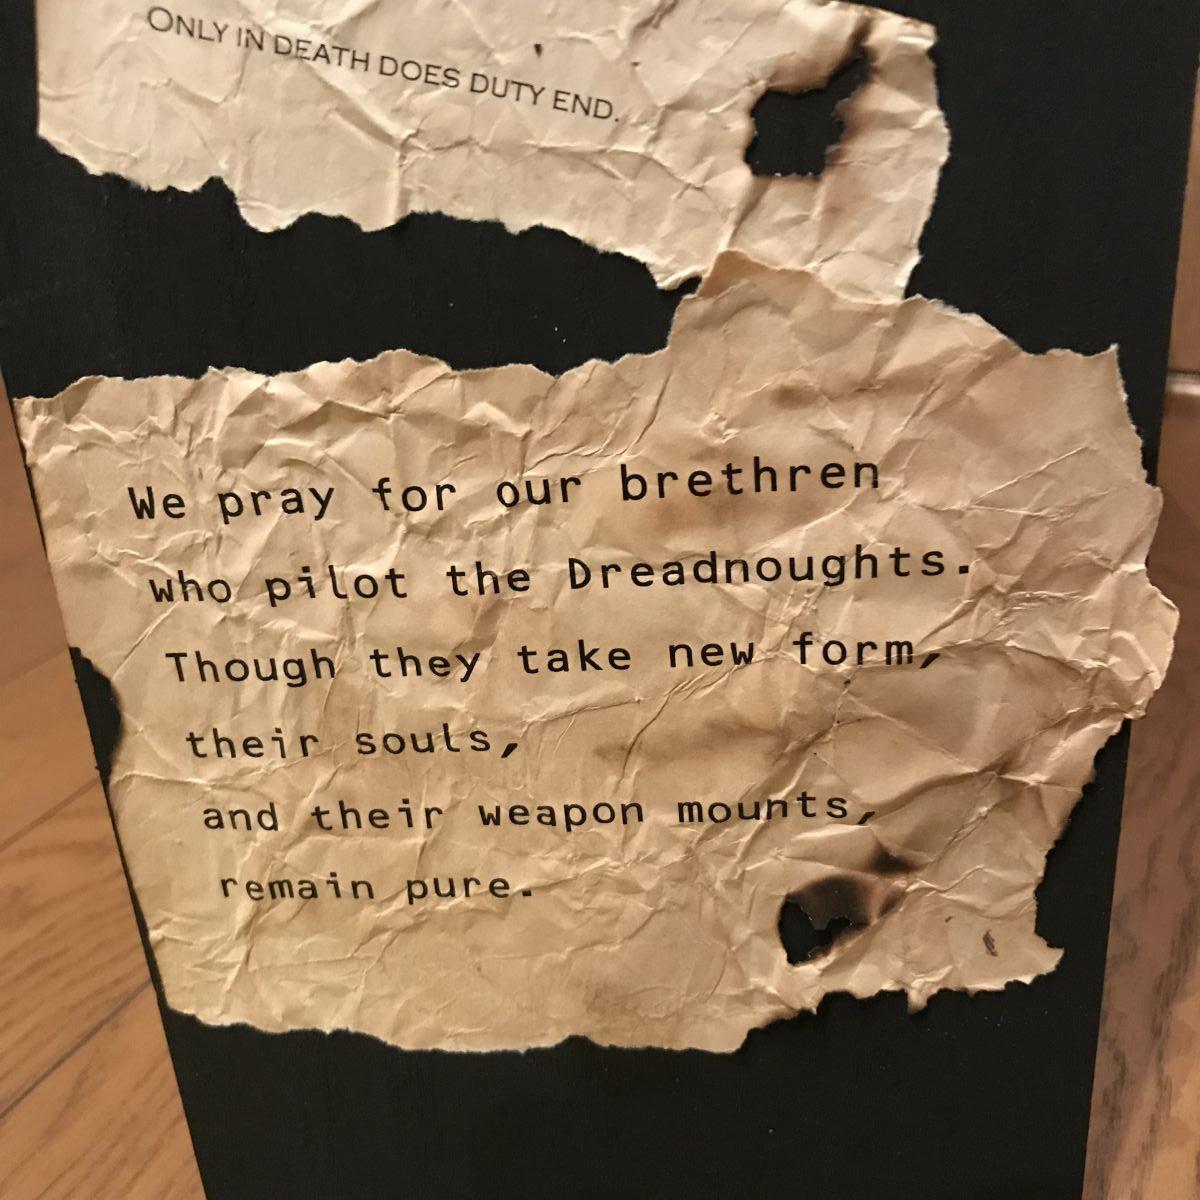 ONLY IN DEATH DOES DUTY END.
We pray for our brethren
who pilot the Dreadnoughts.
Though they take new form,
their souls,
and their weapon mounts,
remain pure.